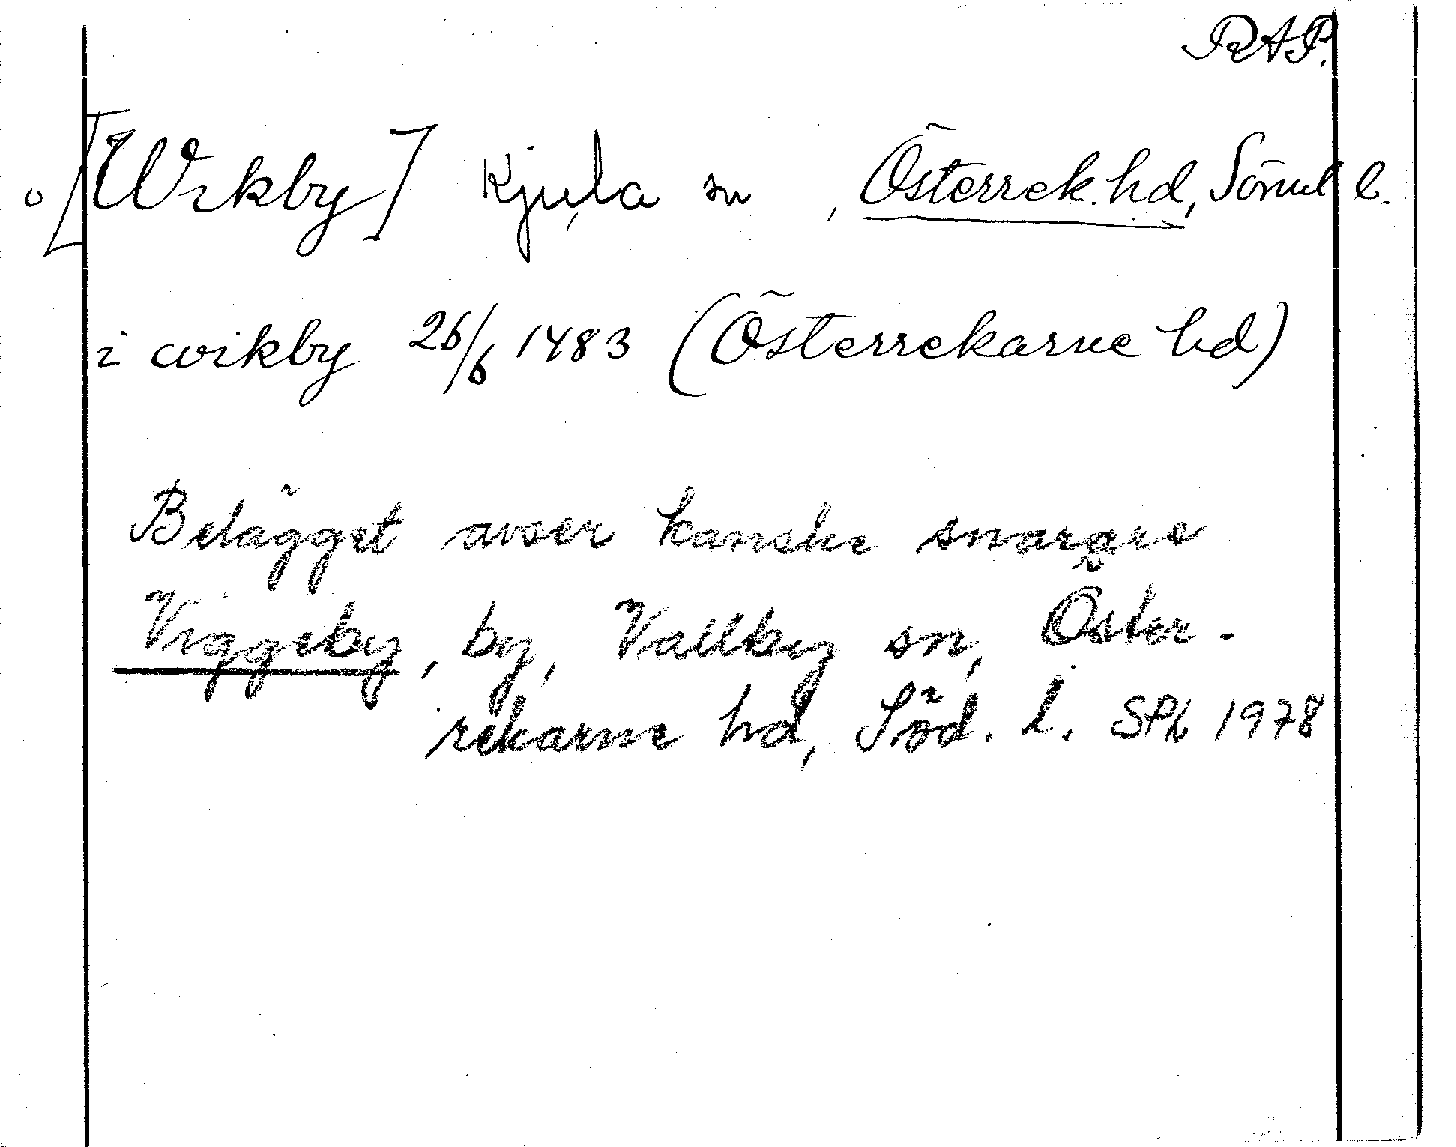 RAP.
o [Wikby] Kjula sn , Österrek. hd, Söml l.
i wikby 26/6 1483 (Österrekarne hd)
Belägget avser kanske snarare
Viggeby, by, Vallby sn, Öster-
rekarne hd, Söd. l. SPh 1978